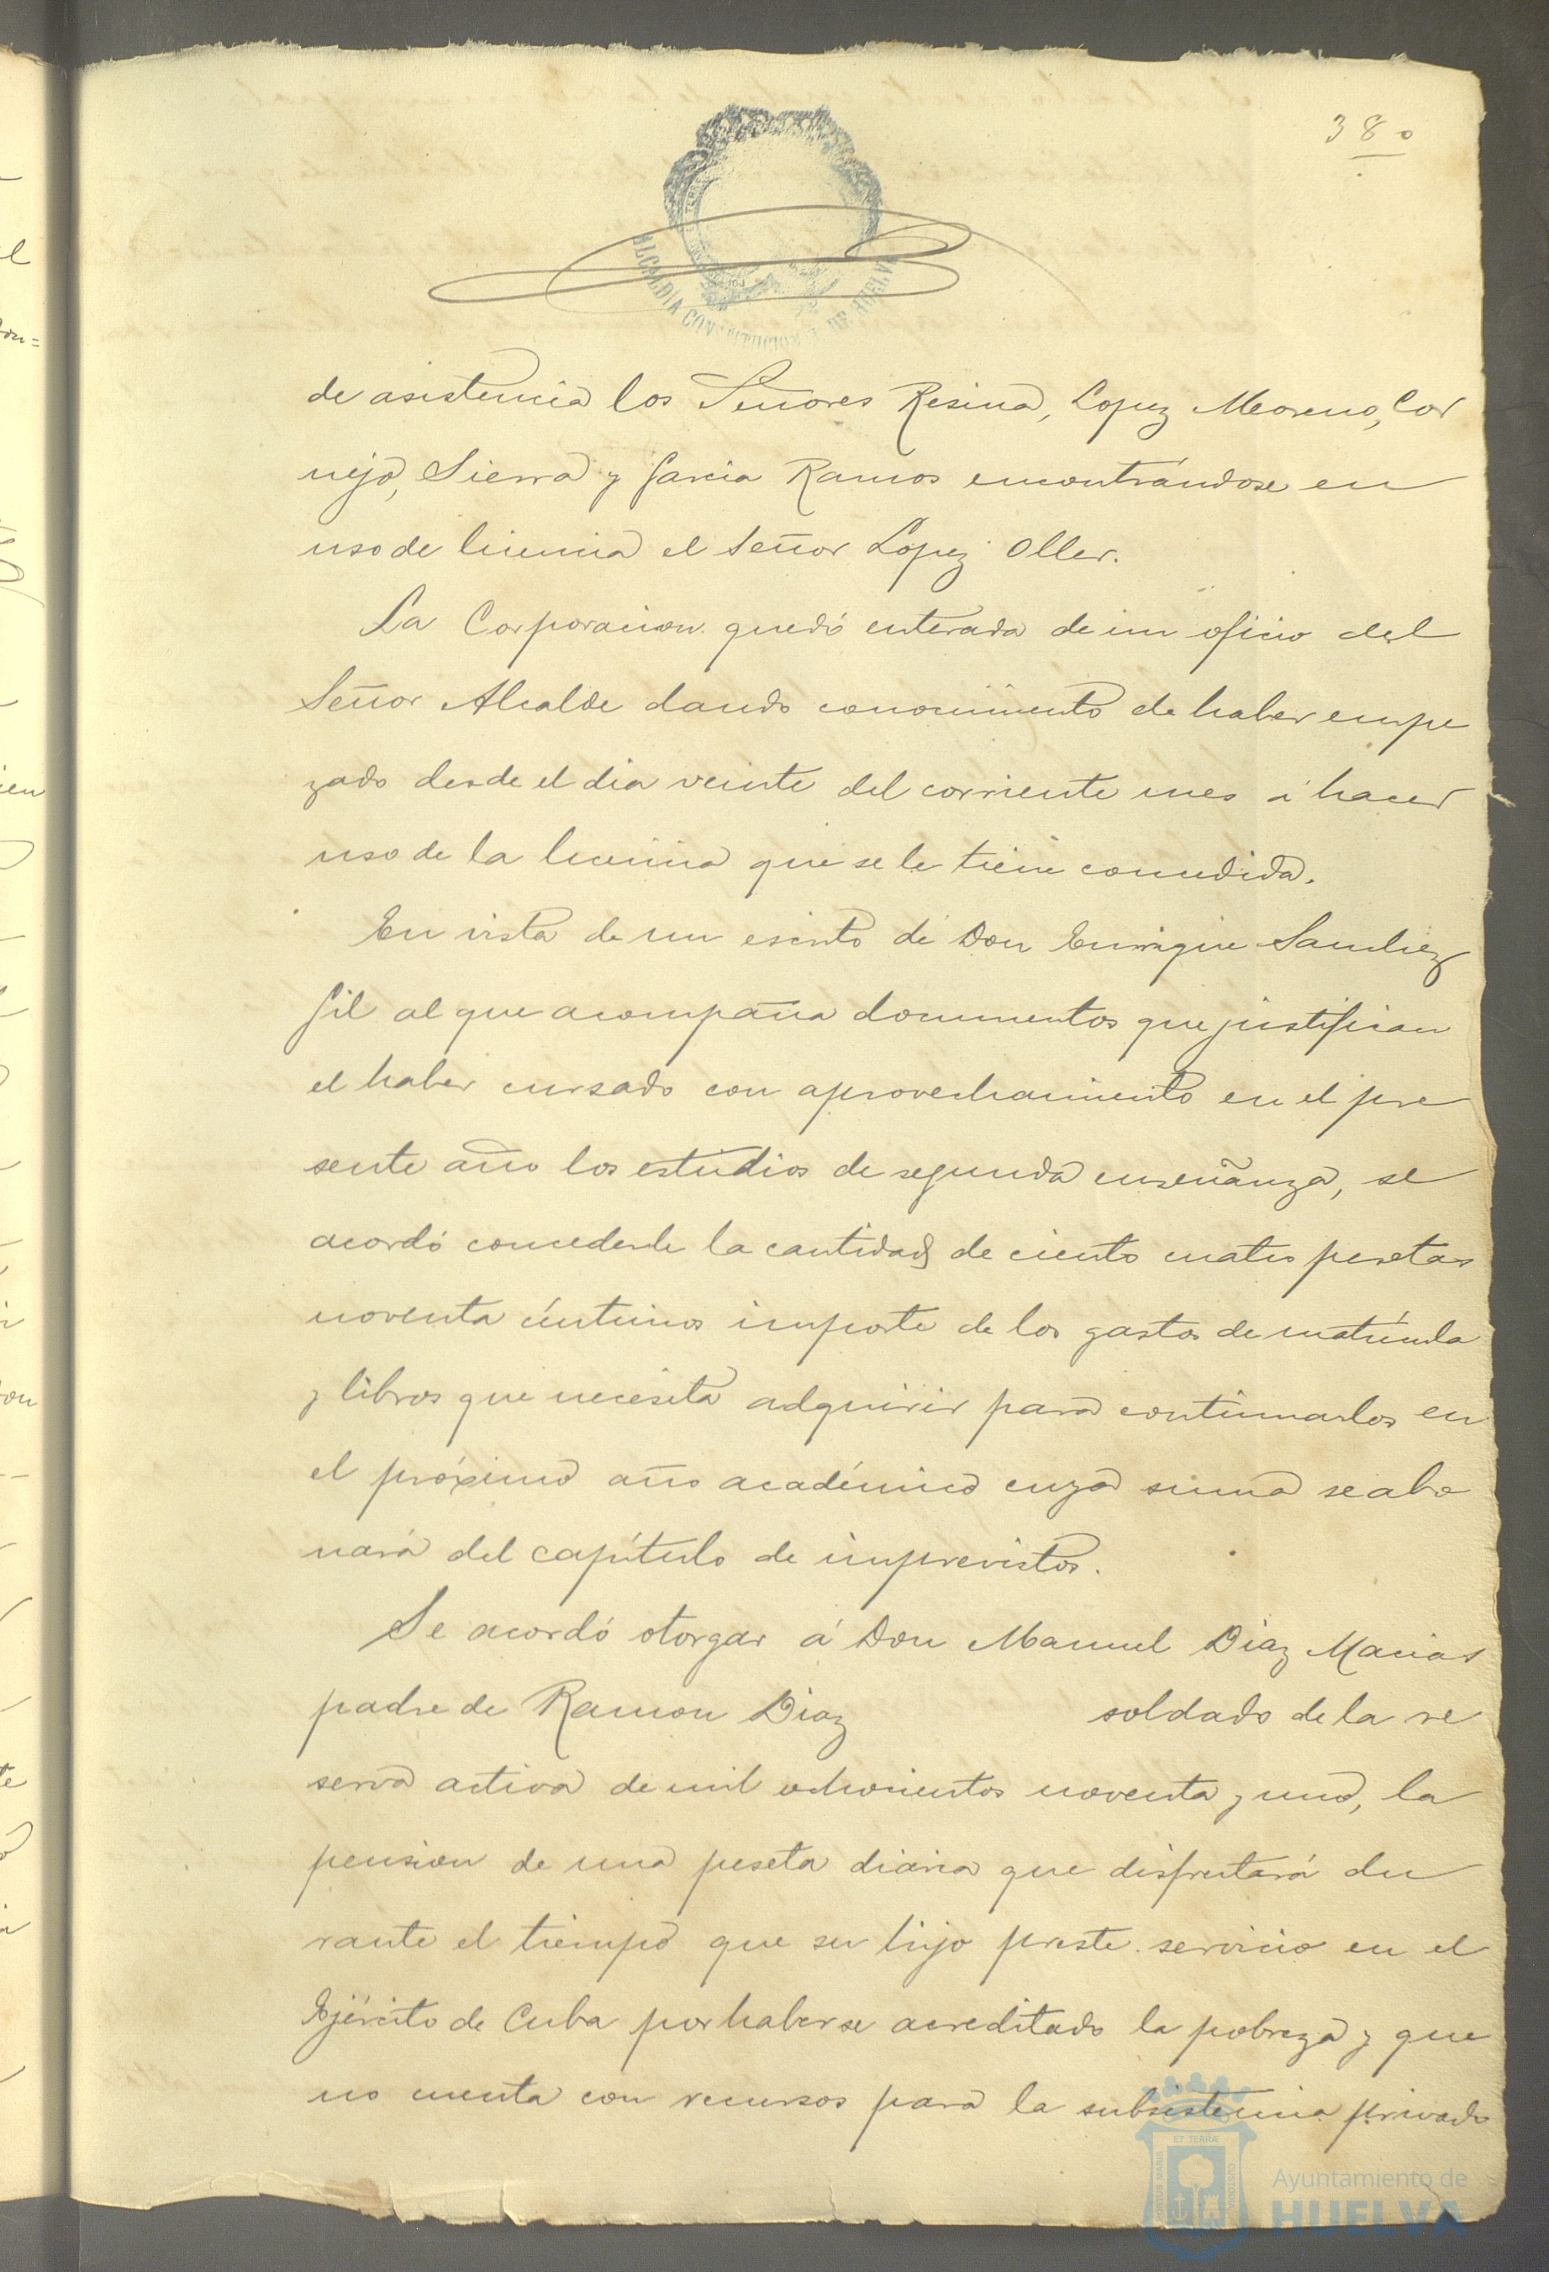 380
ALCALDÍA CONSTITUCIONAL DE HUELVA
de asistencia los Señores Resina, Lopez Moreno, Cor
nejo, Sierra y Garcia Ramos encontrándose en
uso de licencia el Señor Lopez Oller.
La Corporacion quedó enterada de un oficio del
Señor Alcalde dando conocimiento de haber empe
zado desde el dia veinte del corriente mes á hacer
uso de la licencia que se le tiene concedida.
En vista de un escrito de Don Enrique Sanchez
Gil al que acompaña documentos que justifican
el haber cursado con aprovechamiento en el pre
sente año los estudios de segunda enseñanza, se
acordó concederle la cantidad de ciento cuatro pesetas
noventa céntimos importe de los gastos de matrícula
y libros que necesita adquirir para continuarlos en
el próximo año académico cuya suma se abo
nará del capítulo de imprevistos.
Se acordó otorgar á Don Manuel Diaz Macias
padre de Ramon Diaz soldado de la re
serva activa de mil ochocientos noventa y uno, la
pension de una peseta diaria que disfrutará du
rante el tiempo que su hijo preste servicio en el
Ejército de Cuba por haberse acreditado la pobreza y que
no cuenta con recursos para la subsistencia privado
Ayuntamiento de
HUELVA